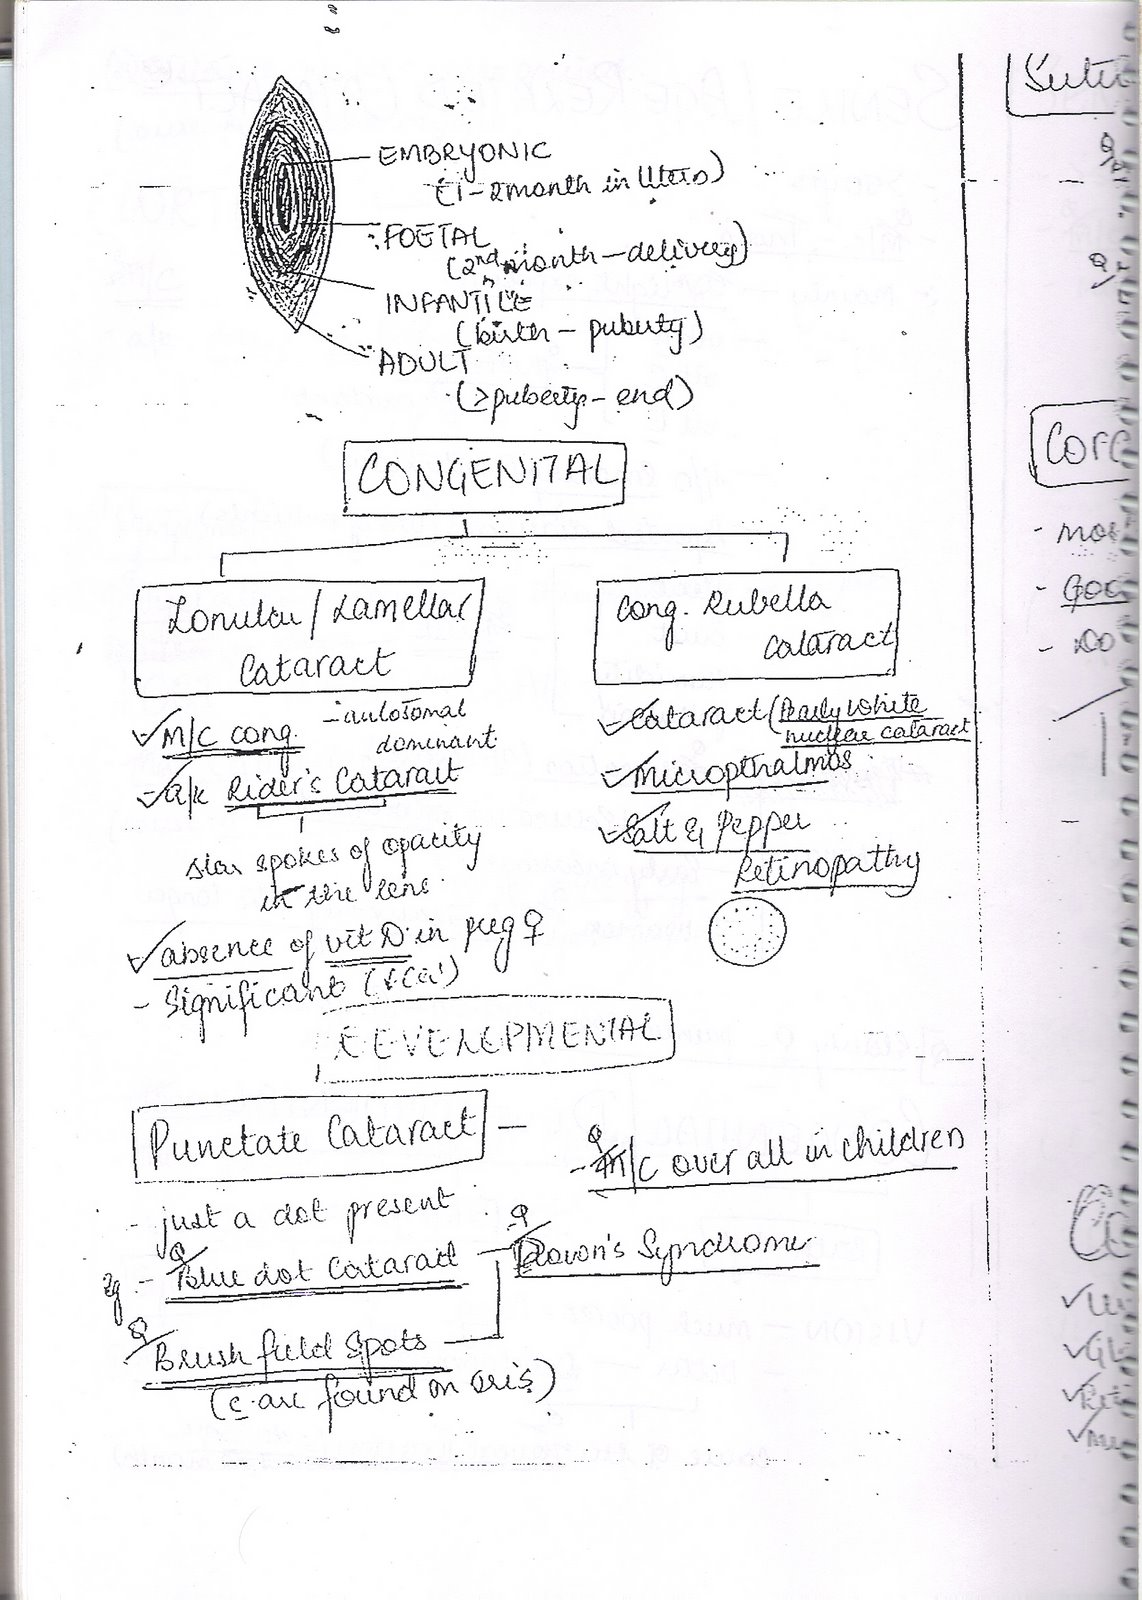 EMBRYONIC
(1-2 month in Utero)
FOETAL
(2nd month - delivery)
INFANTILE
(birth - puberty)
ADULT
(≥puberty - end)
CONGENITAL
Zonular / Lamellar
Cataract
- M/C cong.
- autosomal
dominant
- a/k Rider's Cataract
star spokes of opacity
in the lens
- absence of vit D in preg ♀
- Significant (↓Ca)
Cong. Rubella
Cataract
- Cataract (Pearly White
nuclear cataract
- Micropthalmos
- Salt & Pepper
Retinopathy
DEVELOPMENTAL
Punctate Cataract -
- M/C over all in children
- just a dot present
Eg. - Blue dot Cataract - Down's Syndrome
Brush field Spots
(c are found on iris)
Q
Q
Q
Q
Sutu
Q
Q
Cor
- mos
- Goo
- Do